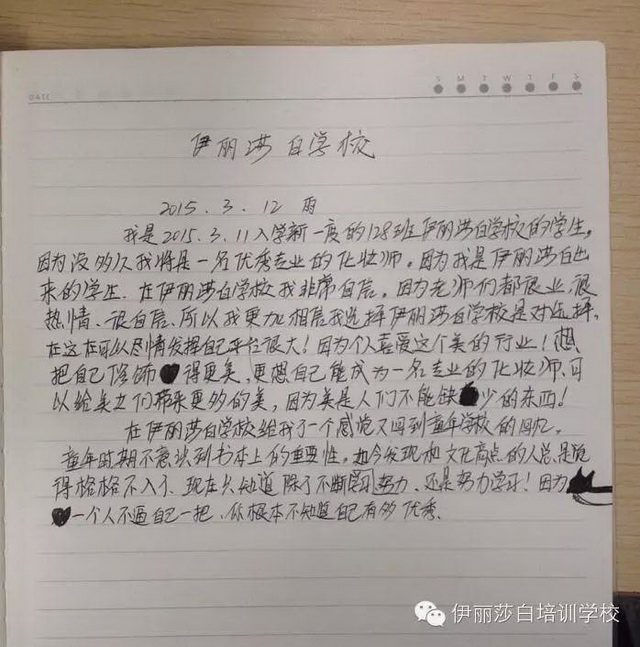 DATE
S M T W T F S
伊丽莎白学校
2015.3.12 雨
我是2015.3.11入学新一度的128班伊丽莎白学校的学生,
因为没多久我将是一名优秀专业的化妆师。因为我是伊丽莎白出
来的学生.在伊丽莎白学校我非常自信。因为老师们都很业.很
热情、很自信.所以我更加相信我选择伊丽莎白学校是对选择.
在这在可以尽情发挥自己平台很大!因为个人喜爱这个美的行业!想
把自己修饰得更美,更想自己能成为一名专业的化妆师.可
以给美女们带来更多的美,因为美是人们不能缺少的东西!
在伊丽莎白学校给我了一个感觉又回到童年学校的回忆。
童年时期不意识到书本上的重要性,如今发现和文化高点的人总是觉
得格格不入了、现在只知道 除了不断学习努力、还是努力学习!因为
一个人不逼自己一把、你根本不知道自己有多优秀.
伊丽莎白培训学校